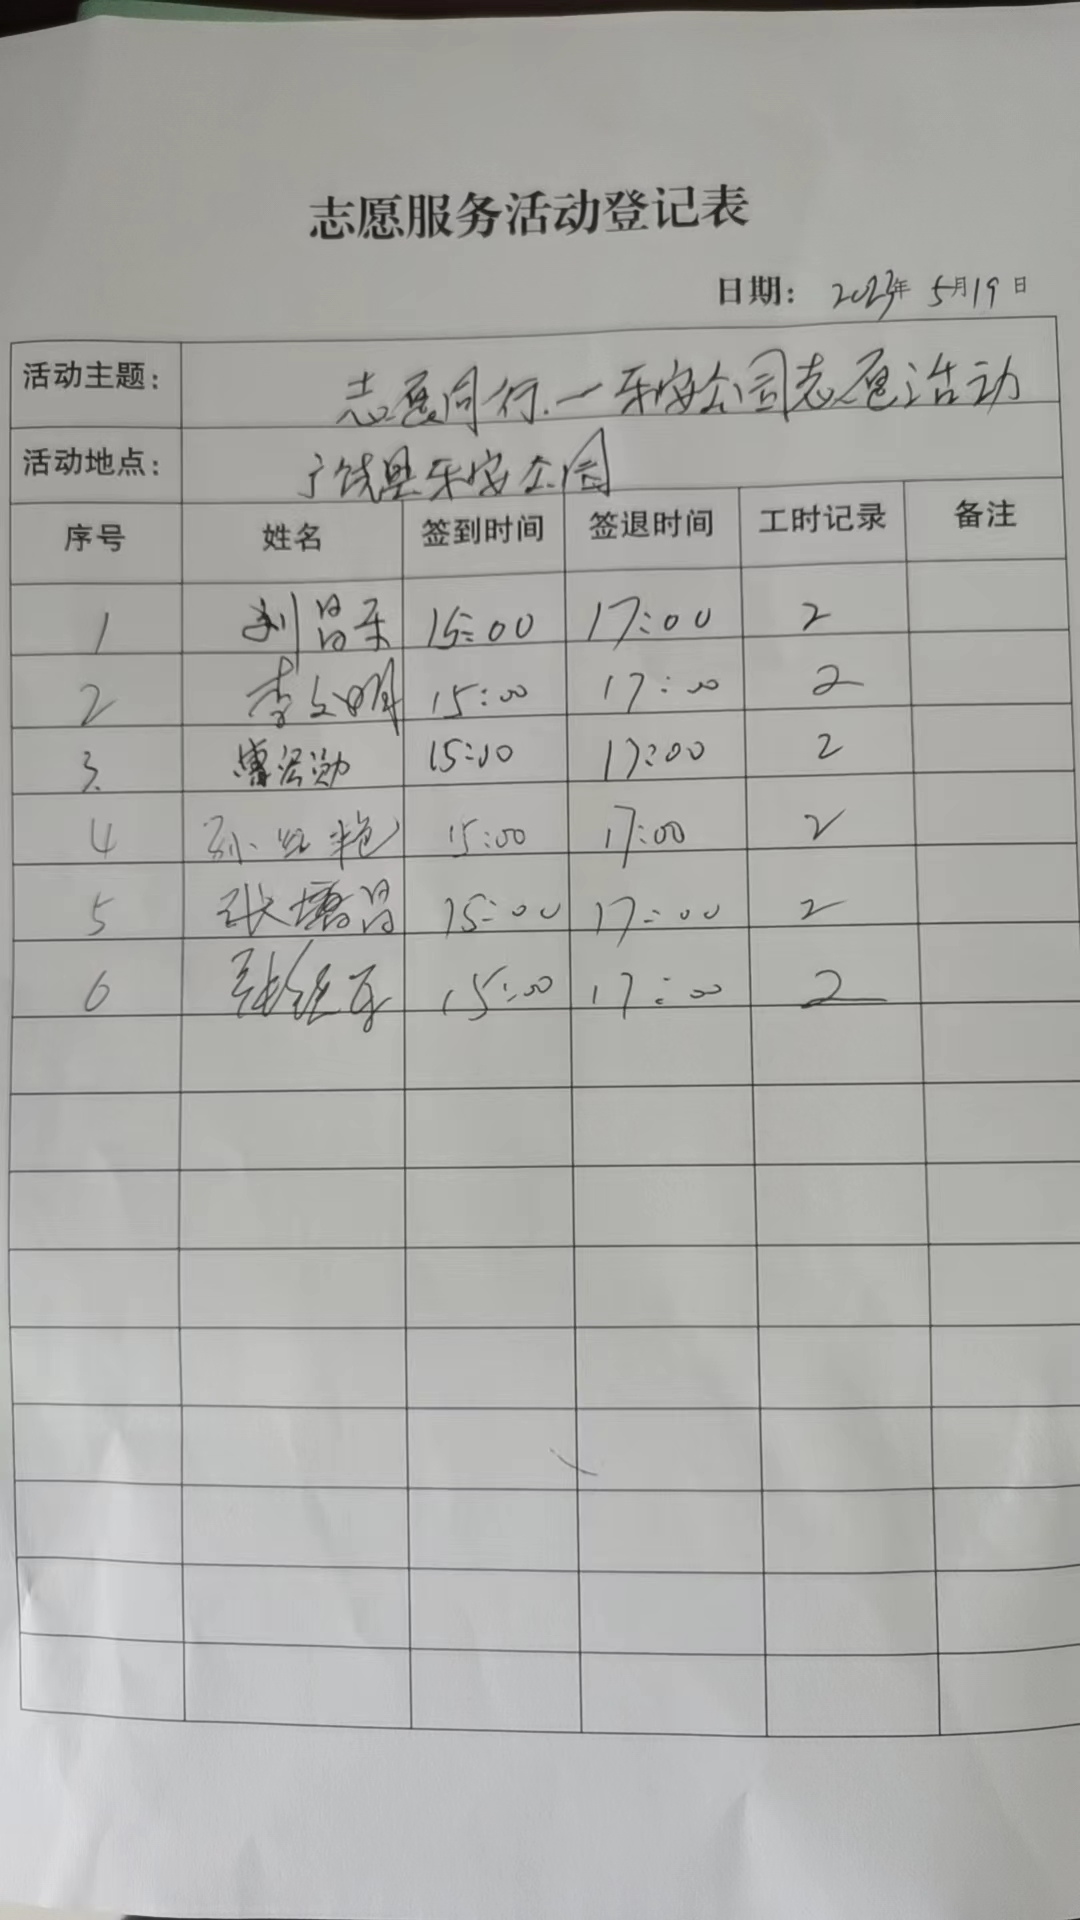 志愿服务活动登记表
日期: 2023年 5月19日
活动主题: 志愿同行.一乐安公园志愿活动
活动地点: 广饶县乐安公园
序号 姓名 签到时间 签退时间 工时记录 备注
1 刘昌乐 15:00 17:00 2
2 李文明 15:00 17:00 2
3. 15:00 17:00 2
4 孙 15:00 17:00 2
5 张 昌 15:00 17:00 2
6 张 15:00 17:00 2